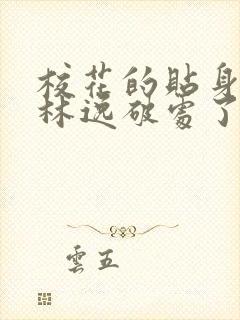 校花的貼身
林逸破處了
雲五